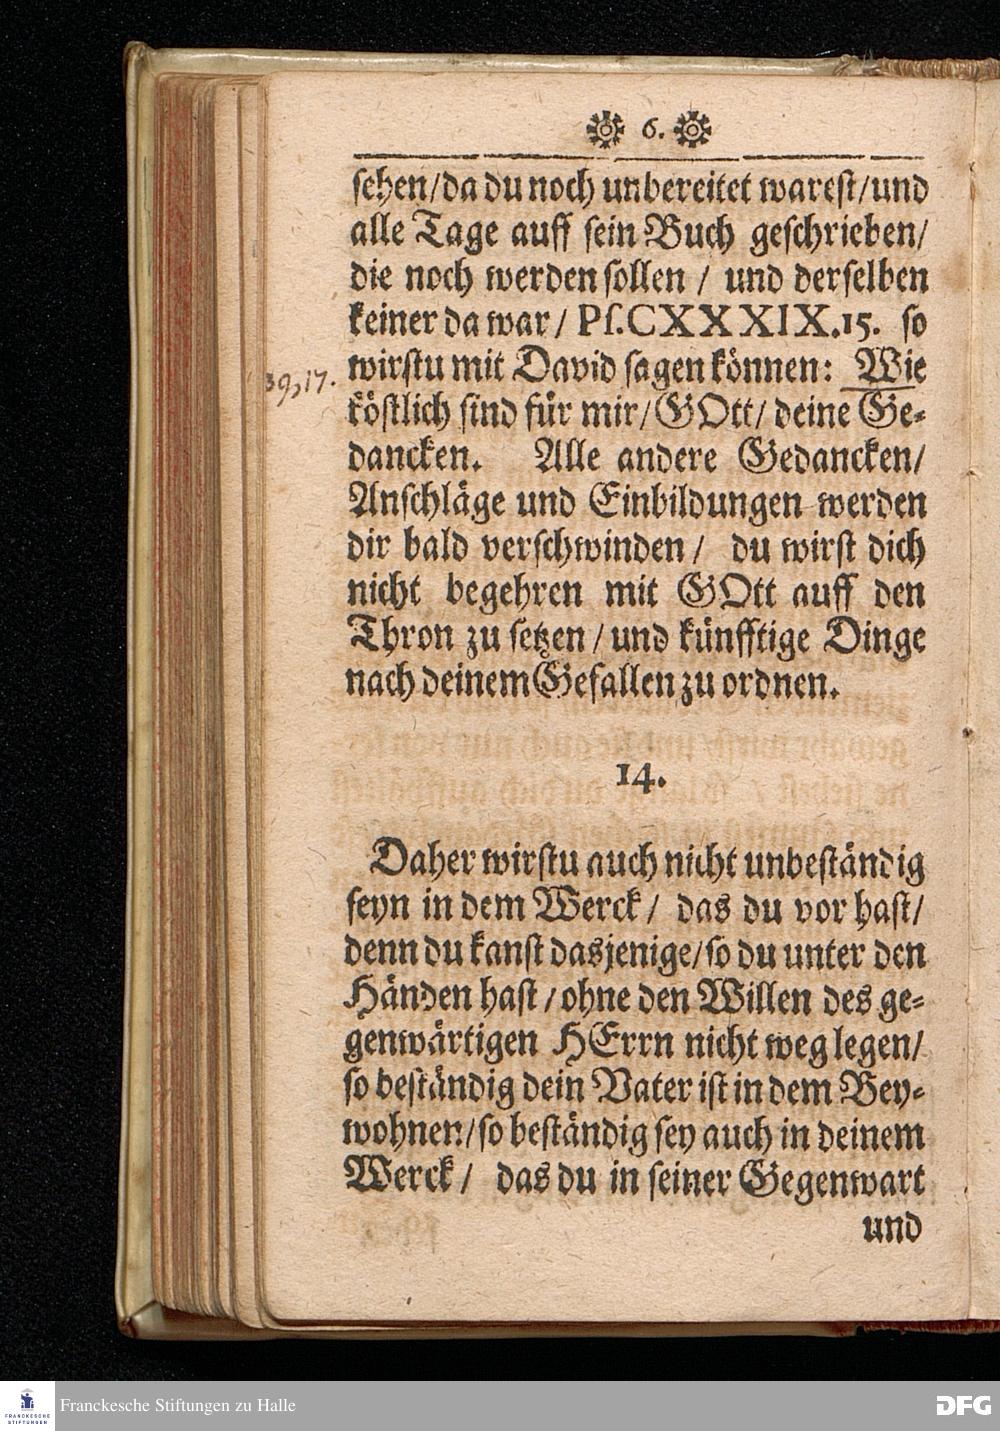 6.
sehen/da du noch unbereitet warest/und
alle Tage auff sein Buch geschrieben/
die noch werden sollen / und derselben
keiner da war/ Ps.CXXXIX.15. so
wirstu mit David sagen können: Wie
39,17.
köstlich sind für mir/GOtt/ deine Ge-
dancken. Alle andere Gedancken/
Anschläge und Einbildungen werden
dir bald verschwinden/ du wirst dich
nicht begehren mit GOtt auff den
Thron zu setzen/und künfftige Dinge
nach deinem Gefallen zu ordnen.
14.
Daher wirstu auch nicht unbeständig
seyn in dem Werck/ das du vor hast/
denn du kanst dasjenige/so du unter den
Händen hast/ohne den Willen des ge-
genwärtigen HErrn nicht weg legen/
so beständig dein Vater ist in dem Bey-
wohnen/so beständig sey auch in deinem
Werck/ das du in seiner Gegenwart
und
FRANCKESCHE
STIFTUNGEN
Franckesche Stiftungen zu Halle
DFG